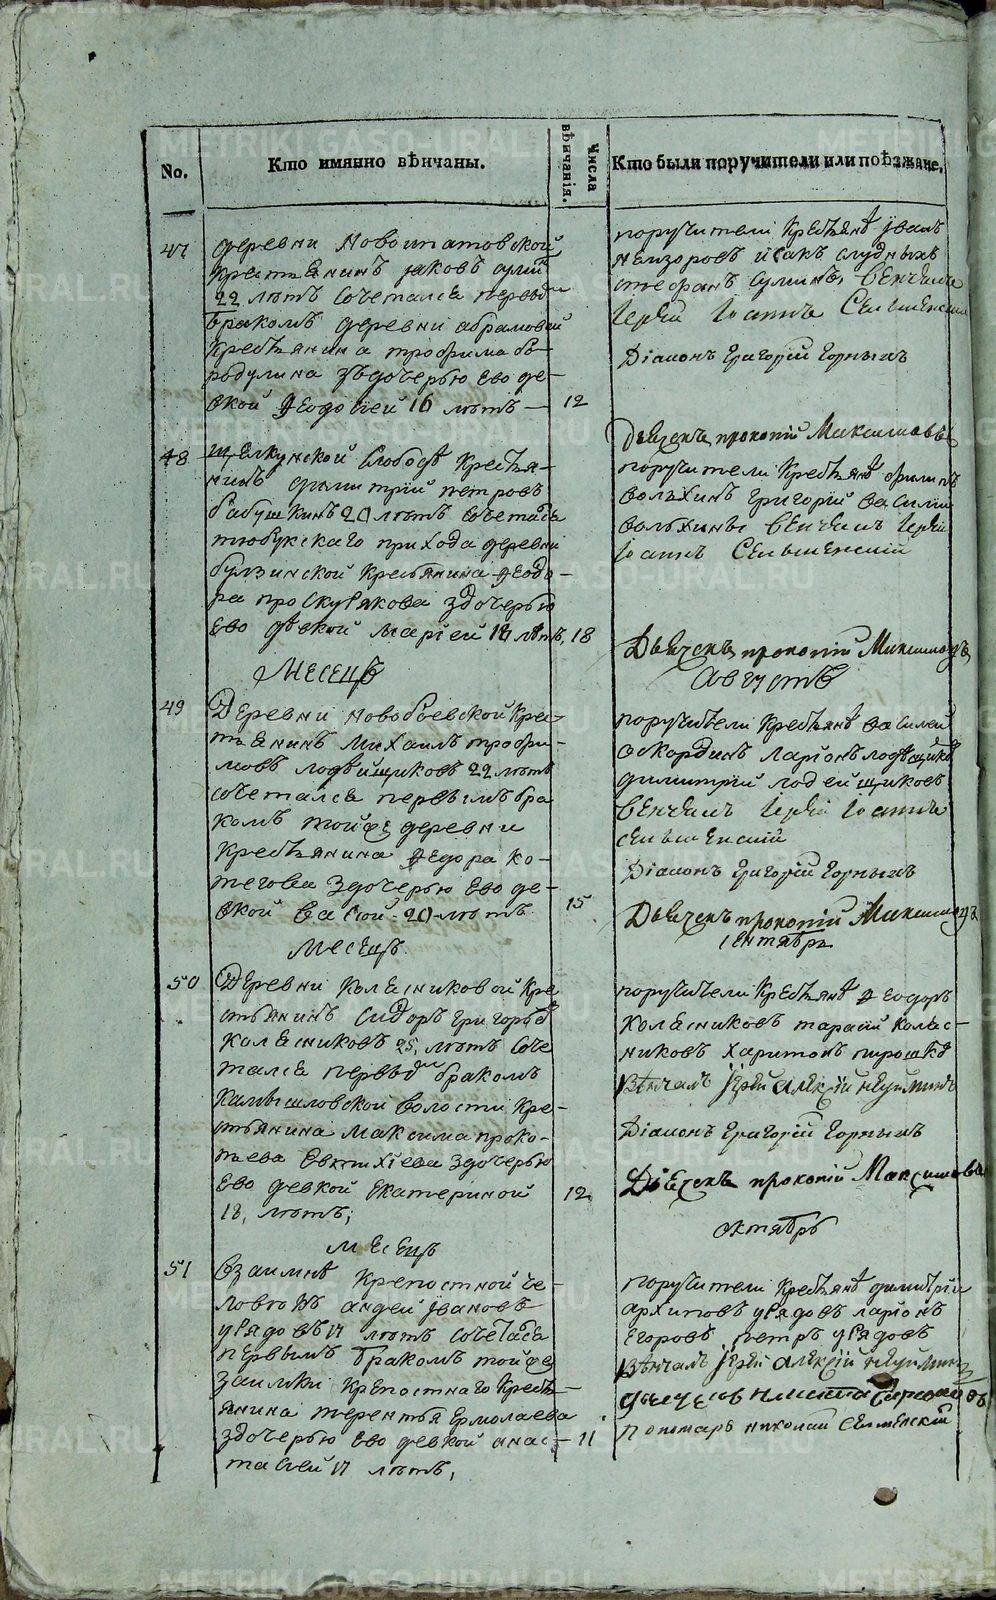 No.
Кто имянно вѣнчаны.
Числа вѣнчанія.
Кто были поручители или поѣзжане.
47
деревни Новоипатовской
крестьянинъ яковъ
22 лѣтъ сочетался первымъ
бракомъ деревни абрамовой
крестьянина трофима бо-
родулина здочерью ево де-
вкой Ѳеодосіей 16 лѣтъ —
12
поручители крестьянѣ Іванъ
исакъ
стефанъ сулинъ, венчалъ
Іерей Іоаннъ
Діаконъ григорій горныхъ
Дьячекъ прокопій Максимовъ
48
Щелкунской слободы крестья-
нинъ димитрій петровъ
бабушкинъ 20 лѣтъ сочетался
тюбукскаго прихода деревни
булзинской крестьянина Ѳеодо-
ра проскурякова здочерью
ево дѣвкой маріей лѣтъ,
18
поручители крестьянѣ филипъ
волхинъ григорій василій
волхины венчалъ Іерей
Іоаннъ
Дьячекъ прокопій Максимовъ
Месецъ
Августъ
49
Деревни новобоевской кре-
стьянинъ Михаилъ трофи-
мовъ лодѣйщиковъ 22 лѣтъ
сочетался первымъ бра
комъ тойже деревни
крестьянина Ѳедора ко-
тегова здочерью ево де-
вкой васой 20 лѣтъ
15
поручители крестьянѣ василей
оскординъ ларіонъ лодѣйщиковъ
димитрій лодейщиковъ
венчалъ Іерей Іоаннъ
Діаконъ григорій горныхъ
Дьячекъ прокопій Максимовъ
Месецъ
сентябрь
50
Деревни колясниковой кре
стьянинъ сидоръ григорьевъ
колясниковъ 25, лѣтъ соче
тался первымъ бракомъ
камышловской волости кре-
стьянина максима проко-
пьева Евтихіева здочерью
Ево девкой Екатериной
18, лѣтъ;
12
поручители крестьянѣ Ѳеодоръ
колясниковъ тарасій коляс-
никовъ харитонъ
вѣнчалъ Іерей алексѣй
Діаконъ григорій горныхъ
Дьячекъ прокопій Максимовъ
месецъ
октябрь
51
Взаимкѣ крепостной че-
ловѣкъ андей івановъ
урядовъ 17 лѣтъ сочетался
первымъ бракомъ тойже
заимки крепостнаго кресть-
янина терентья Ермолаева
здочерью ево девкой анас-
тасіей 17 лѣтъ,
11
поручители крестьянѣ димитрій
архиповъ урядовъ ларіонъ
егоровъ петръ урядовъ
вѣнчалъ Іерей алексѣй
пономарь николай